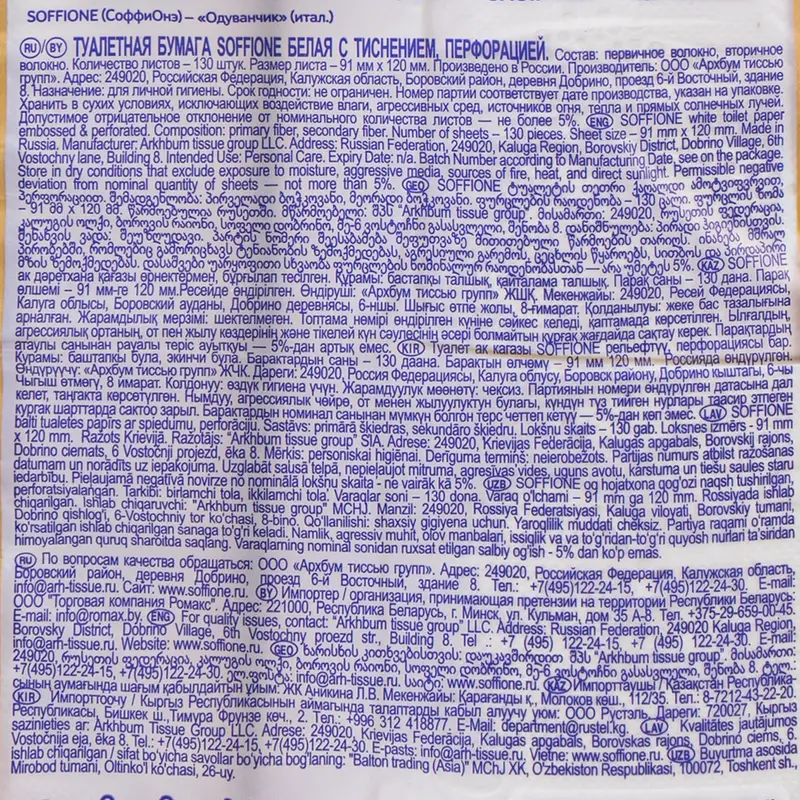 SOFFIONE (СоффиОнэ) – «Одуванчик» (итал.)
RU/BY ТУАЛЕТНАЯ БУМАГА SOFFIONE БЕЛАЯ С ТИСНЕНИЕМ, ПЕРФОРАЦИЕЙ. Состав: первичное волокно, вторичное
волокно. Количество листов – 130 штук. Размер листа – 91 мм x 120 мм. Произведено в России. Производитель: ООО «Архбум тиссью
групп». Адрес: 249020, Российская Федерация, Калужская область, Боровский район, деревня Добрино, проезд 6-й Восточный, здание
8. Назначение: для личной гигиены. Срок годности: не ограничен. Номер партии соответствует дате производства, указан на упаковке.
Хранить в сухих условиях, исключающих воздействие влаги, агрессивных сред, источников огня, тепла и прямых солнечных лучей.
Допустимое отрицательное отклонение от номинального количества листов — не более 5%. ENG SOFFIONE white toilet paper
embossed & perforated. Composition: primary fiber, secondary fiber. Number of sheets – 130 pieces. Sheet size – 91 mm x 120 mm. Made in
Russia. Manufacturer: Arkhbum tissue group LLC. Address: Russian Federation, 249020, Kaluga Region, Borovskiy District, Dobrino Village, 6th
Vostochny lane, Building 8. Intended Use: Personal Care. Expiry Date: n/a. Batch Number according to Manufacturing Date, see on the package.
Store in dry conditions that exclude exposure to moisture, aggressive media, sources of fire, heat, and direct sunlight. Permissible negative
deviation from nominal quantity of sheets — not more than 5%. GEO SOFFIONE ტუალეტის თეთრი ქაღალდი ამოტვიფვრით,
პერფორაციით. შემადგენლობა: პირველადი ბოჭკოვანი, მეორადი ბოჭკოვანი. ფურცლების რაოდენობა – 130 ცალი. ფურცლის ზომა
– 91 მმ x 120 მმ. წარმოებულია რუსეთში. მწარმოებელი: შპს "Arkhbum tissue group". მისამართი: 249020, რუსეთის ფედერაცია,
კალუგის ოლქი, ბოროვის რაიონი, სოფელი დობრინო, მე-6 ვოსტოჩნი გასასვლელი, შენობა 8. დანიშნულება: პირადი ჰიგიენისთვის.
შენახვის ვადა: შეუზღუდავი. პარტიის ნომერი შეესაბამება შეფუთვაზე მითითებული წარმოების თარიღს. ინახება მშრალ
პირობებში, რომლებიც გამორიცხავს ტენიანობის ზემოქმედებას, აგრესიული გარემოს, ცეცხლის წყაროებს, სითბოს და პირდაპირი
მზის ზემოქმედებას. დასაშვები უარყოფითი სხვაობა ფურცლების ნომინალურ რაოდენობასთან — არა უმეტეს 5%. KAZ SOFFIONE
ақ дәретхана қағазы өрнектермен, бұрғылап тесілген. Құрамы: бастапқы талшық, қайталама талшық. Парақ саны – 130 дана. Парақ
өлшемі – 91 мм-ге 120 мм.Ресейде өндірілген. Өндіруші: «Архбум тиссью групп» ЖШҚ. Мекенжайы: 249020, Ресей Федерациясы,
Калуга облысы, Боровский ауданы, Добрино деревнясы, 6-ншы. Шығыс өтпе жолы, 8-ғимарат. Қолданылуы: жеке бас тазалығына
арналған. Жарамдылық мерзімі: шектелмеген. Топтама немірі өндірілген күніне сәйкес келеді, қаптамада көрсетілген. Ылғалдың,
агрессиялық ортаның, от пен жылу көздерінің және тікелей күн сәулесінің әсері болмайтын құрғақ жағдайда сақтау керек. Парақтардың
атаулы санынан рауалы теріс ауытқуы — 5%-дан артық емес. KIR Туалет ак кагазы SOFFIONE рельефтүү, перфорациясы бар.
Курамы: баштапкы була, экинчи була. Барактардын саны – 130 даана. Барактын өлчөмү – 91 мм 120 мм. Россияда өндүрүлгөн.
Өндүрүүчү: «Архбум тиссью групп» ЖЧК. Дареги: 249020, Россия Федерациясы, Калуга облусу, Боровск району, Добрино кыштагы, 6-чы
Чыгыш өтмөгү, 8 имарат. Колдонуу: өздүк гигиена үчүн. Жарамдуулук мөөнөтү: чексиз. Партиянын номери өндүрүлгөн датасына дал
келет, таңгакта көрсөтүлгөн. Нымдуу, агрессиялык чөйрө, от менен жылуулуктун булагы, күндүн түз тийген нурлары таасир этпеген
кургак шарттарда сактоо зарыл. Барактардын номинал санынан мүмкүн болгон терс четтеп кетүү — 5%-дан көп эмес. LAV SOFFIONE
balti tualetes papīrs ar spiedumu, perforāciju. Sastāvs: primārā šķiedras, sekundāro šķiedru. Lokšņu skaits – 130 gab. Loksnes izmērs - 91 mm
x 120 mm. Ražots Krievijā. Ražotājs: "Arkhbum tissue group" SIA. Adrese: 249020, Krievijas Federācija, Kalugas apgabals, Borovskij rajons,
Dobrino ciemats, 6 Vostočnji projezd, ēka 8. Mērķis: personiskai higiēnai. Derīguma termiņš: neierobežots. Partijas numurs atbilst ražošanas
datumam un norādīts uz iepakojuma. Uzglabāt sausā telpā, nepieļaujot mitruma, agresīvas vides, uguns avotu, karstuma un tiešu saules staru
iedarbību. Pieļaujamā negatīvā novirze no nominālā lokšņu skaita - ne vairāk kā 5%. UZB SOFFIONE oq hojatxona qog'ozi naqsh tushirilgan,
perforatsiyalangan. Tarkibi: birlamchi tola, ikkilamchi tola. Varaqlar soni – 130 dona. Varaq o'lchami – 91 mm ga 120 mm. Rossiyada ishlab
chiqarilgan. Ishlab chiqaruvchi: "Arkhbum tissue group" MCHJ. Manzil: 249020, Rossiya Federatsiyasi, Kaluga viloyati, Borovskiy tumani,
Dobrino qishlog'i, 6-Vostochniy tor ko'chasi, 8-bino. Qo'llanilishi: shaxsiy gigiyena uchun. Yaroqlilik muddati cheksiz. Partiya raqami o'ramda
ko'rsatilgan ishlab chiqarilgan sanaga to'g'ri keladi. Namlik, agressiv muhit, olov manbalari, issiqlik va va to'g'ridan-to'g'ri quyosh nurlari ta'siridan
himoyalangan quruq sharoitda saqlang. Varaqlarning nominal sonidan ruxsat etilgan salbiy og'ish - 5% dan ko'p emas.
RU По вопросам качества обращаться: ООО «Архбум тиссью групп». Адрес: 249020, Российская Федерация, Калужская область,
Боровский район, деревня Добрино, проезд 6-й Восточный, здание 8. Тел.: +7(495)122-24-15, +7(495)122-24-30. E-mail:
info@arh-tissue.ru. Сайт: www.soffione.ru. BY Импортер / организация, принимающая претензии на территории Республики Беларусь:
ООО "Торговая компания Ромакс". Адрес: 221000, Республика Беларусь, г. Минск, ул. Кульман, дом 35 А-8. Тел. +375-29-659-00-45.
E-mail: info@romax.by. ENG For quality issues, contact: "Arkhbum tissue group" LLC. Address: Russian Federation, 249020 Kaluga Region,
Borovsky District, Dobrino Village, 6th Vostochny proezd str., Building 8. Tel : +7 (495) 122-24-15, +7 (495) 122-24-30. E-mail:
info@arh-tissue.ru. Website: www.soffione.ru. GEO ხარისხის კითხვებისთვის: დაუკავშირდით შპს "Arkhbum tissue group". მისამართი:
249020, რუსეთის ფედერაცია, კალუგის ოლქი, ბოროვის რაიონი, სოფელი დობრინო, მე-6 ვოსტოჩნი გასასვლელი, შენობა 8. ტელ.:
+7(495)122-24-15, +7(495)122-24-30. ელ.ფოსტა: info@arh-tissue.ru. საიტი: www.soffione.ru. KAZ Импорттаушы / Қазақстан Республика-
сының аумағында шағым қабылдайтын ұйым: ЖК Аникина Л.В. Мекенжайы: Қарағанды қ., Молоков көш., 112/35. Тел.: 8-7212-43-22-20.
KIR Импорттоочу / Кыргыз Республикасынын аймагында талаптарды кабыл алуучу уюм: ООО Рустэль. Дареги: 720027, Кыргыз
Республикасы, Бишкек ш.,Тимура Фрунзе көч., 2. Тел.: +996 312 418877. E-Mail: department@rustel.kg. LAV Kvalitātes jautājumos
sazinieties ar: Arkhbum Tissue Group LLC, Adrese: 249020, Krievijas Federācija, Kalugas apgabals, Borovskas rajons, Dobrino ciems, 6.
Vostočnija eja, ēka 8. Tel.: +7(495)122-24-15, +7(495)122-24-30. E-pasts: info@arh-tissue.ru. Vietne: www.soffione.ru. UZB Buyurtma asosida
ishlab chiqarilgan / sifat bo'yicha savollar bo'yicha bog'laning: "Balton trading (Asia)" MChJ XK, O'zbekiston Respublikasi, 100072, Toshkent sh.,
Mirobod tumani, Oltinko'l ko'chasi, 26-uy.